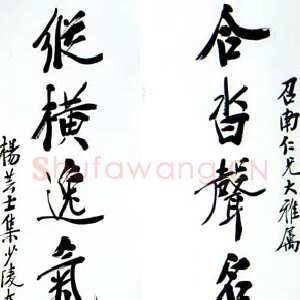 召南仁兄大雅属
合沓聲名
縱橫逸氣
楊芸士集少陵
Shufawang.CN